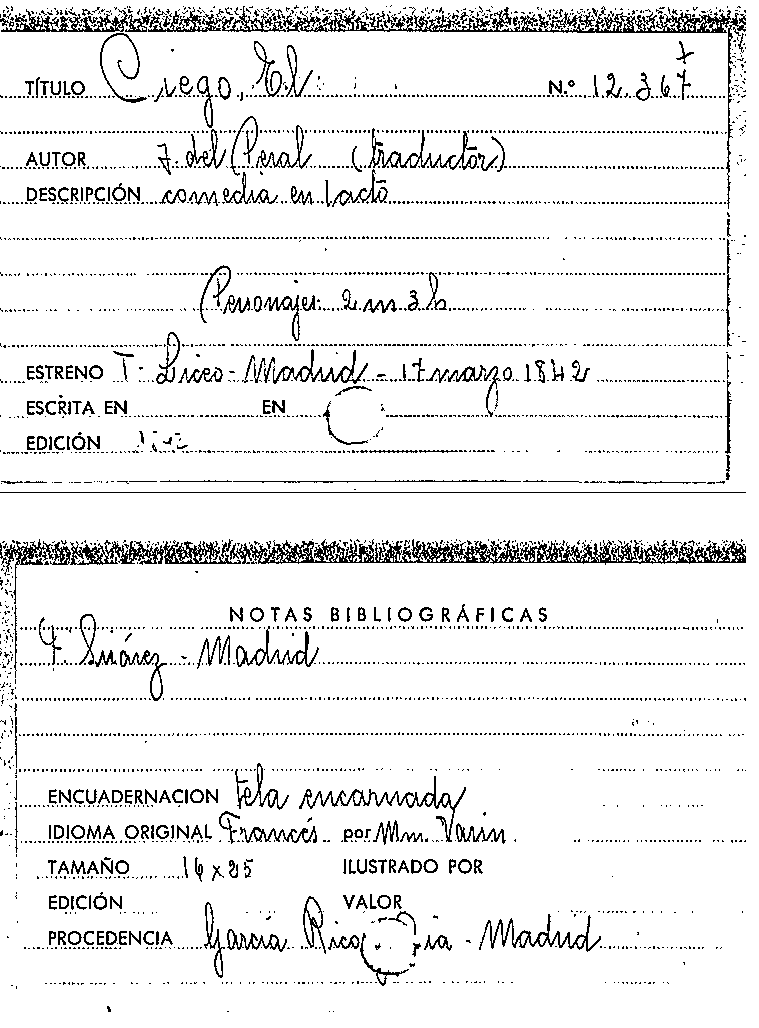 TÍTULO Ciego, El N.º 12.367
AUTOR J. del Peral (traductor)
DESCRIPCIÓN comedia en 1 acto
Personajes: 2 m 3 h
ESTRENO T. Liceo - Madrid - 17 marzo 1842
ESCRITA EN EN
EDICIÓN
NOTAS BIBLIOGRÁFICAS
F. Suárez - Madrid
ENCUADERNACION tela encarnada
IDIOMA ORIGINAL Francés por Mm. Varin
TAMAÑO 16 x 25 ILUSTRADO POR
EDICIÓN VALOR
PROCEDENCIA García Rico - Madrid